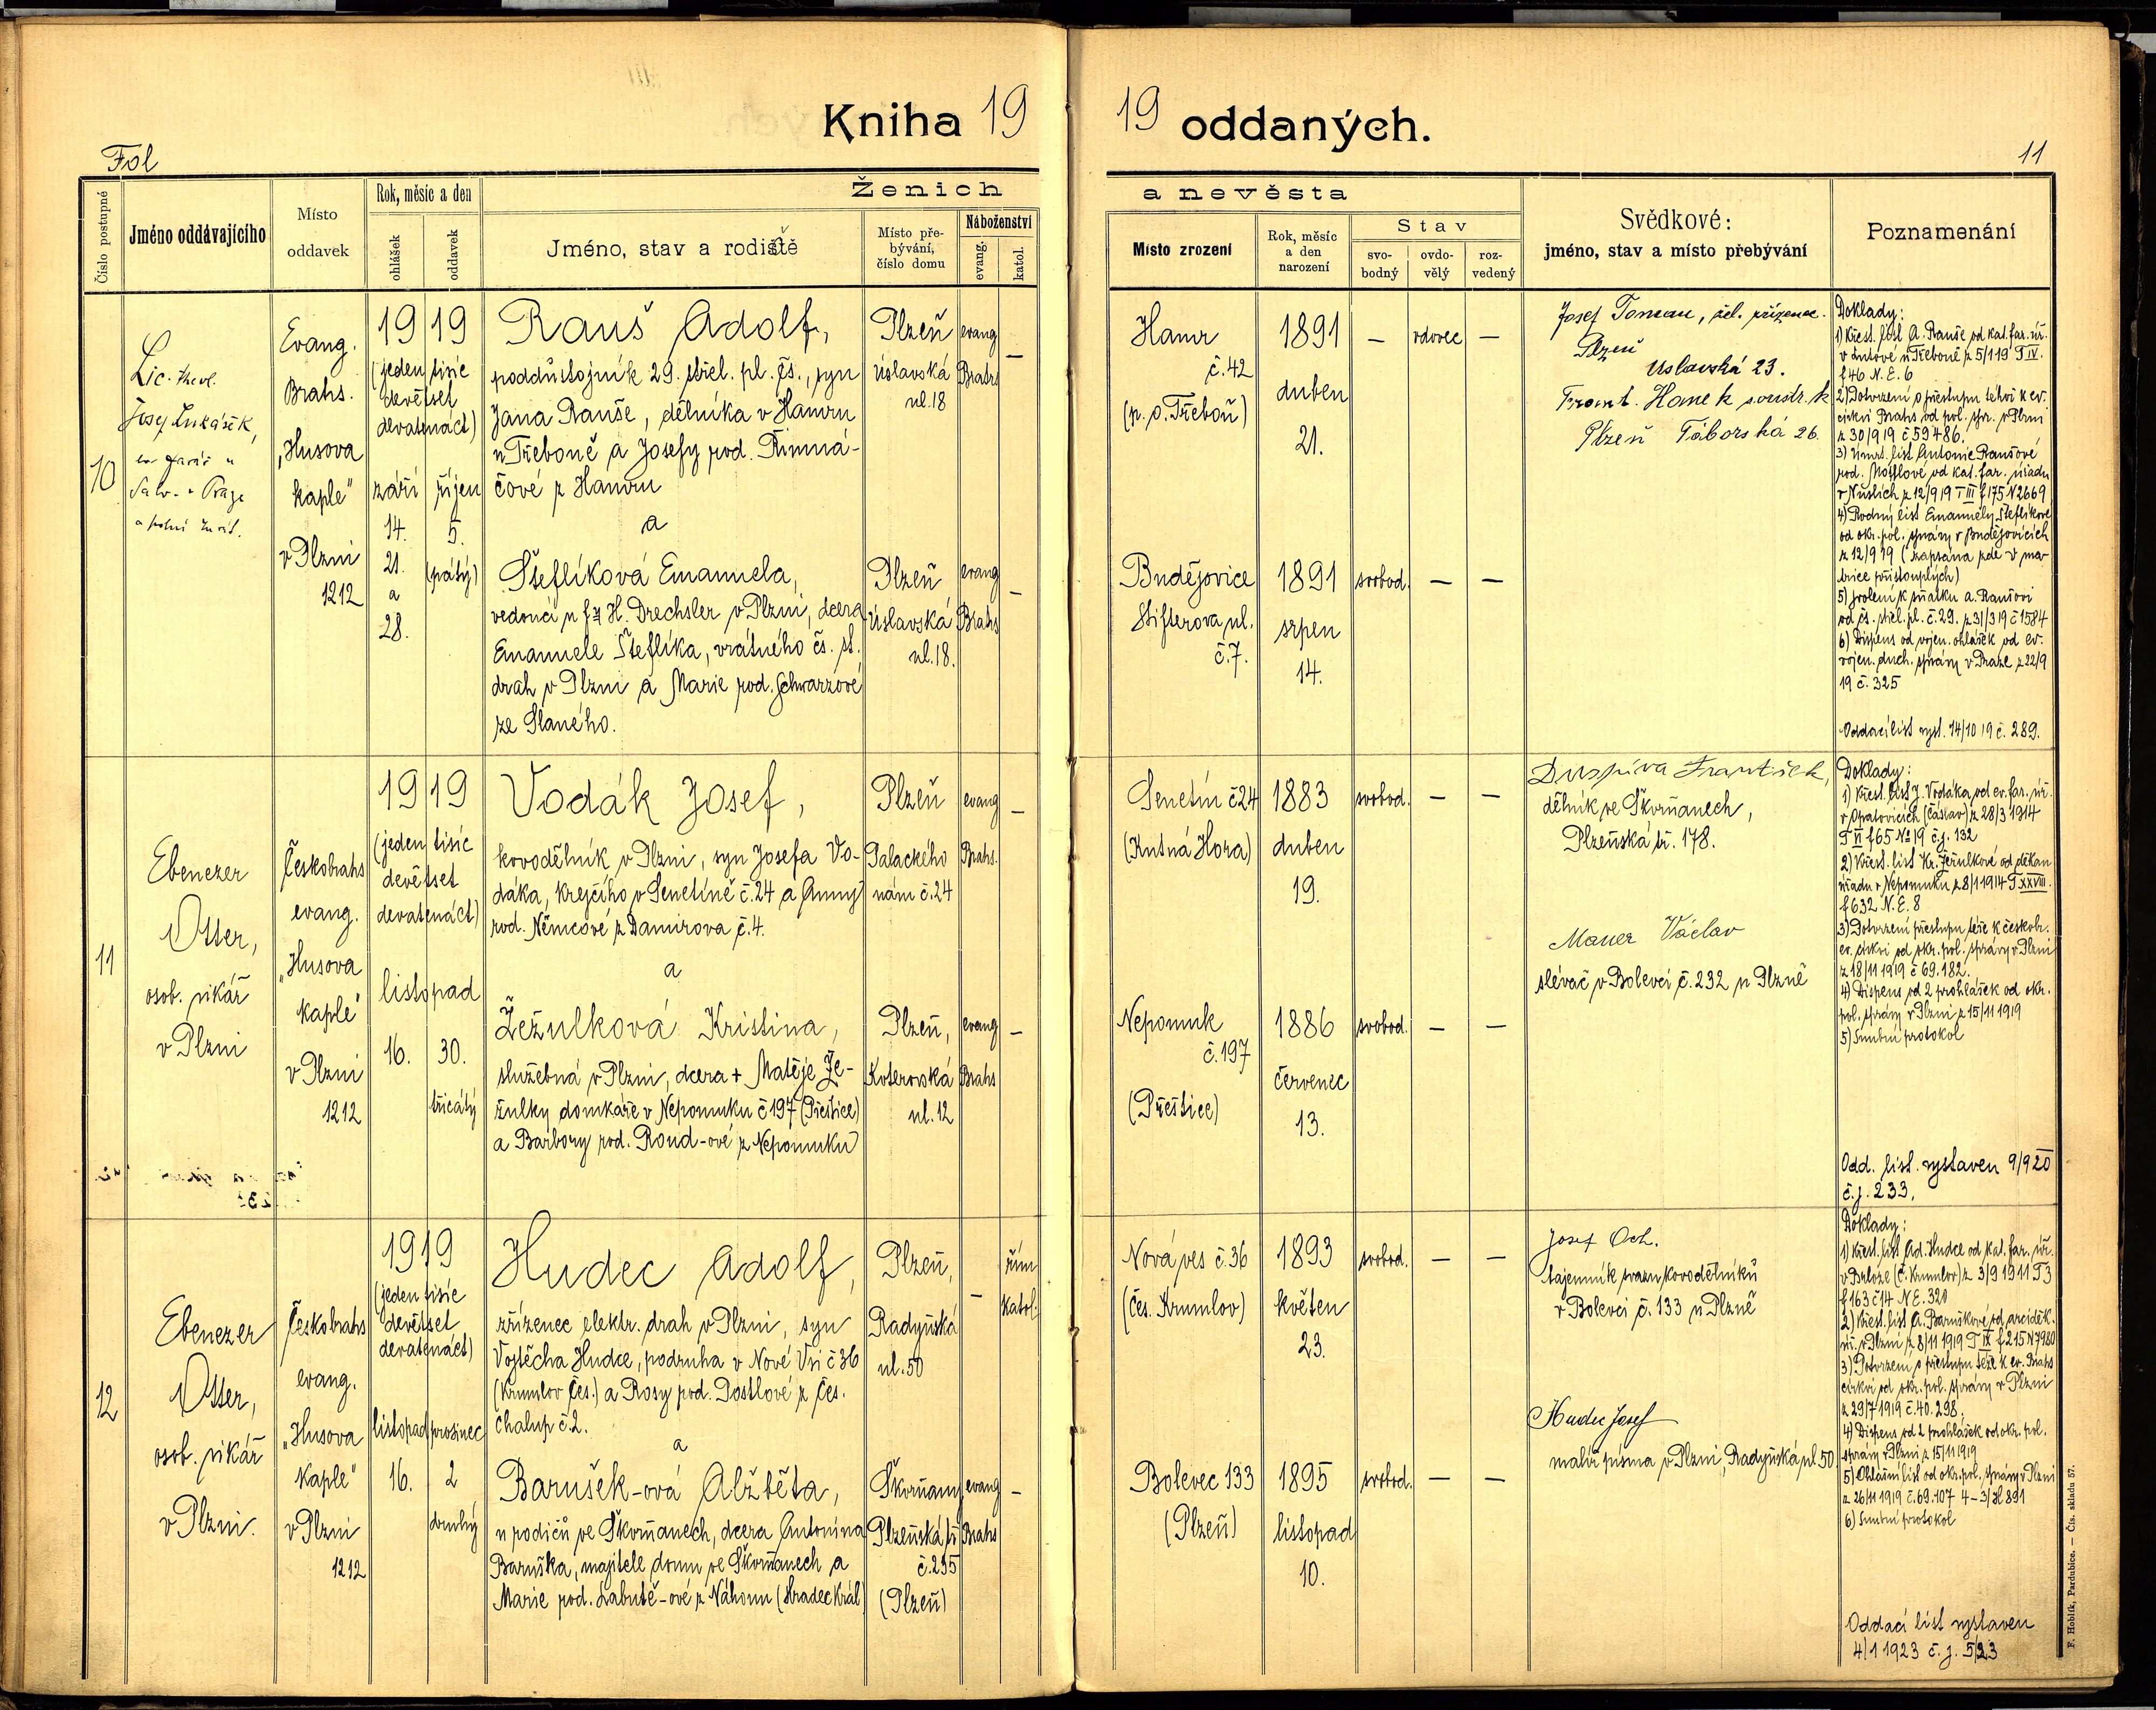 Kniha 19
19 oddaných.
Fol
11
Číslo postupné
Jméno oddávajícího
Místo
oddavek
Rok, měsíc a den
ohlášek
oddavek
Ženich
Jméno, stav a rodiště
Místo pře-
bývání,
číslo domu
Náboženství
evang.
katol.
a nevěsta
Místo zrození
Rok, měsíc
a den
narození
Stav
svo-
bodný
ovdo-
vělý
roz-
vedený
Svědkové:
jméno, stav a místo přebývání
Poznamenání
10
Lic. theol.
Josef Lukášek,
ev. farář u
Salv. v Praze
Evang.
Brahs.
„Husova
kaple"
v Plzni
1212
1919
(jeden tisíc
devětset
devatenáct)
září
14.
21.
a
28.
říjen
5.
(pátý)
Rauš Adolf,
poddůstojník 29. střel. pl. čs., syn
Jana Rauše, dělníka v Hamru
u Třeboně a Josefy rod. Římná-
čové z Hamru
a
Šteflíková Emanuela,
vedoucí u f. H. Drechsler v Plzni, dcera
Emanuele Šteflíka, vrátného čs. st.
drah v Plzni a Marie rod. Schwarzové
ze Slaného.
Plzeň
Úslavská
ul. 18
evang
Brahs
—
Plzeň
Úslavská
ul. 18.
evang
Brahs
—
Hamr
č. 42
(p. o. Třeboň)
1891
duben
21.
—
vdovec
—
Budějovice
Stifterova ul.
č. 7.
1891
srpen
14.
svobod.
—
—
Josef Toman, žel. zřízenec.
Plzeň
Uslavská 23.
Frant. Hanek
Plzeň Táborská 26.
Doklady:
1) Křest. list A. Rauše od kat. far. úř.
v Lutové u Třeboně z 5/1 19 T IV.
f 46 N. E. 6
2) Dotvrzení o přestupu téhož k ev.
církvi Brahs od pol. spr. v Plzni
z 30/9 19 č 59486.
3) Úmrt. list Antonie Raušové
rod. od kat. far. úřadu
v Nuslích z 12/9 19 T III f 175 N 2669
4) Rodný list Emanuely Šteflíkové
od okr. pol. správy v Budějovicích
z 12/9 19 (zapsána zde v ma-
trice přistouplých)
5) Svolení k sňatku A. Raušovi
od čs. střel. pl. č. 29. z 31/3 19 č 1584
6) Dispens od vojen. ohlášek od ev.
vojen. duch. správy v Praze z 22/9
19 č. 325
Oddací list vyst. 14/10 19 č. 289.
11
Ebenezer
Otter,
osob. vikář
v Plzni
Českobrahs
evang.
„Husova
kaple"
v Plzni
1212
1919
(jeden tisíc
devětset
devatenáct)
listopad
16.
30.
třicátý
Vodák Josef,
kovodělník v Plzni, syn Josefa Vo-
dáka, krejčího v Senetíně č. 24 a Anny
rod. Němcové z Damirova č. 4.
a
Žežulková Kristina,
služebná v Plzni, dcera + Matěje Že-
žulky domkáře v Nepomuku č 197 (Přeštice)
a Barbory rod. Roud-ové z Nepomuku
Plzeň
Palackého
nám č. 24
evang
Brahs.
—
Plzeň,
Koterovská
ul. 12
evang
Brahs
—
Senetín č 24
(Kutná Hora)
1883
duben
19.
svobod.
—
—
Nepomuk
č. 197
(Přeštice)
1886
červenec
13.
svobod.
—
—
Duspiva František,
dělník ve Škvrňanech,
Plzeňská tř. 178.
Mauer Václav
slévač v Bolevci č. 232 u Plzně
Doklady:
1) Křest. list J. Vodáka od ev. far. úř.
v Opatovicích (Čáslav) z 28/3 1914
T II f 65 No 19 č.j. 132
2) Křest. list Kr. Žežulkové od děkan.
úřadu v Nepomuku z 8/1 1914 T XXVIII.
f 632 N. E. 8
3) Dotvrzení přestupu téže k českobr.
ev. církvi od okr. pol. správy v Plzni
z 18/11 1919 č 69.182.
4) Dispens od 2 prohlášek od okr.
pol. správy v Plzni z 15/11 1919
5) Snubní protokol
Odd. list. vystaven 9/9 20
č.j. 233.
12
Ebenezer
Otter,
osob. vikář
v Plzni.
Českobrahs
evang.
„Husova
kaple"
v Plzni
1212
1919
(jeden tisíc
devětset
devatenáct)
listopad
16.
prosinec
2
druhý
Hudec Adolf,
zřízenec elektr. drah v Plzni, syn
Vojtěcha Hudce, podruha v Nové Vsi č 36
(Krumlov Čes.) a Rosy rod. Postlové z Čes.
Chalup č. 2.
a
Barušek-ová Alžběta,
u rodičů ve Škvrňanech, dcera Antonína
Baruška, majitele domu ve Škvrňanech a
Marie rod. Labutě-ové z Náhonu (Hradec Král)
Plzeň,
Radyňská
ul. 50
—
řím
katol.
Škvrňany,
Plzeňská tř
č. 235
(Plzeň)
evang
Brahs
—
Nová ves č. 36
(Čes. Krumlov)
1893
květen
23.
svobod.
—
—
Bolevec 133
(Plzeň)
1895
listopad
10.
svobod.
—
—
Josef Och.
tajemník svazu kovodělníků
v Bolevci č. 133 u Plzně
Hudec Josef
malíř písma v Plzni, Radyňská ul 50
Doklady:
1) Křest. list Ad. Hudce od kat. far. úř.
v Brloze (Č. Krumlov) z 3/9 1911 T 3
f 163 č 14 N. E. 320
2) Křest. list A. Baruškové od arciděk.
úř. v Plzni z 8/11 1919 T IX f 215 N 7980
3) Potvrzení o přestupu téže k ev. Brahs
církvi od okr. pol. správy v Plzni
z 29/7 1919 č. 40. 298.
4) Dispens od 2 prohlášek od okr. pol.
správy v Plzni z 15/11 1919
5) Ohlašní list od okr. pol. správy v Plzni
z 26/11 1919 č. 69.107 4-3/H 891
6) Snubní protokol
Oddací list vystaven
4/1 1923 č. j. 5/23
F. Hoblík, Pardubice. — Čís. skladu 57.